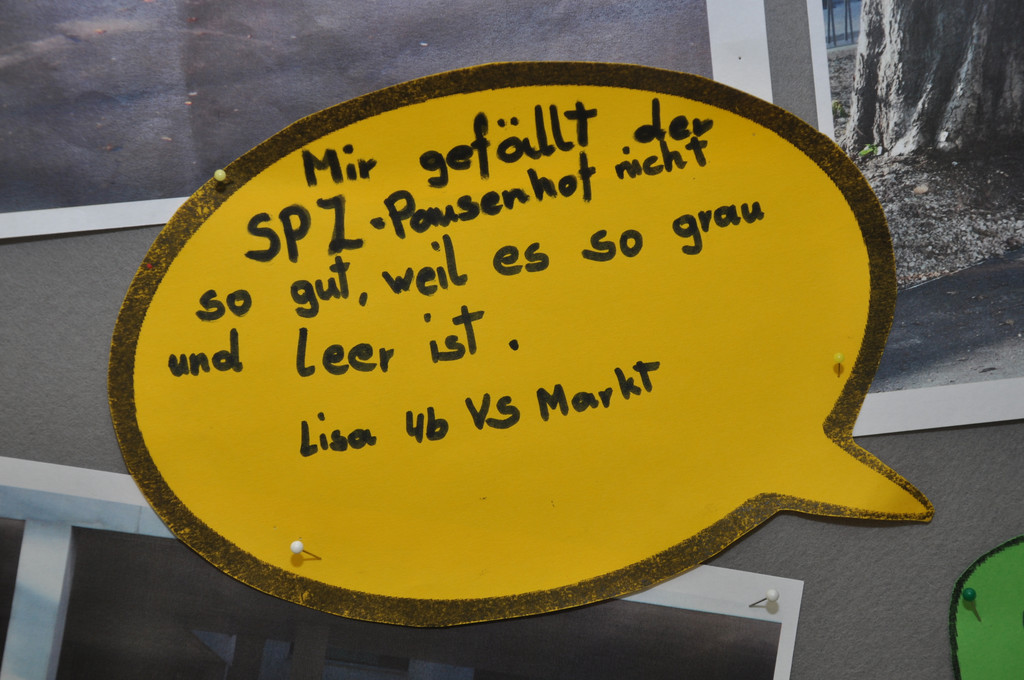 Mir gefällt der
SPZ-Pausenhof nicht
so gut, weil es so grau
und Leer ist.
Lisa 4b VS Markt